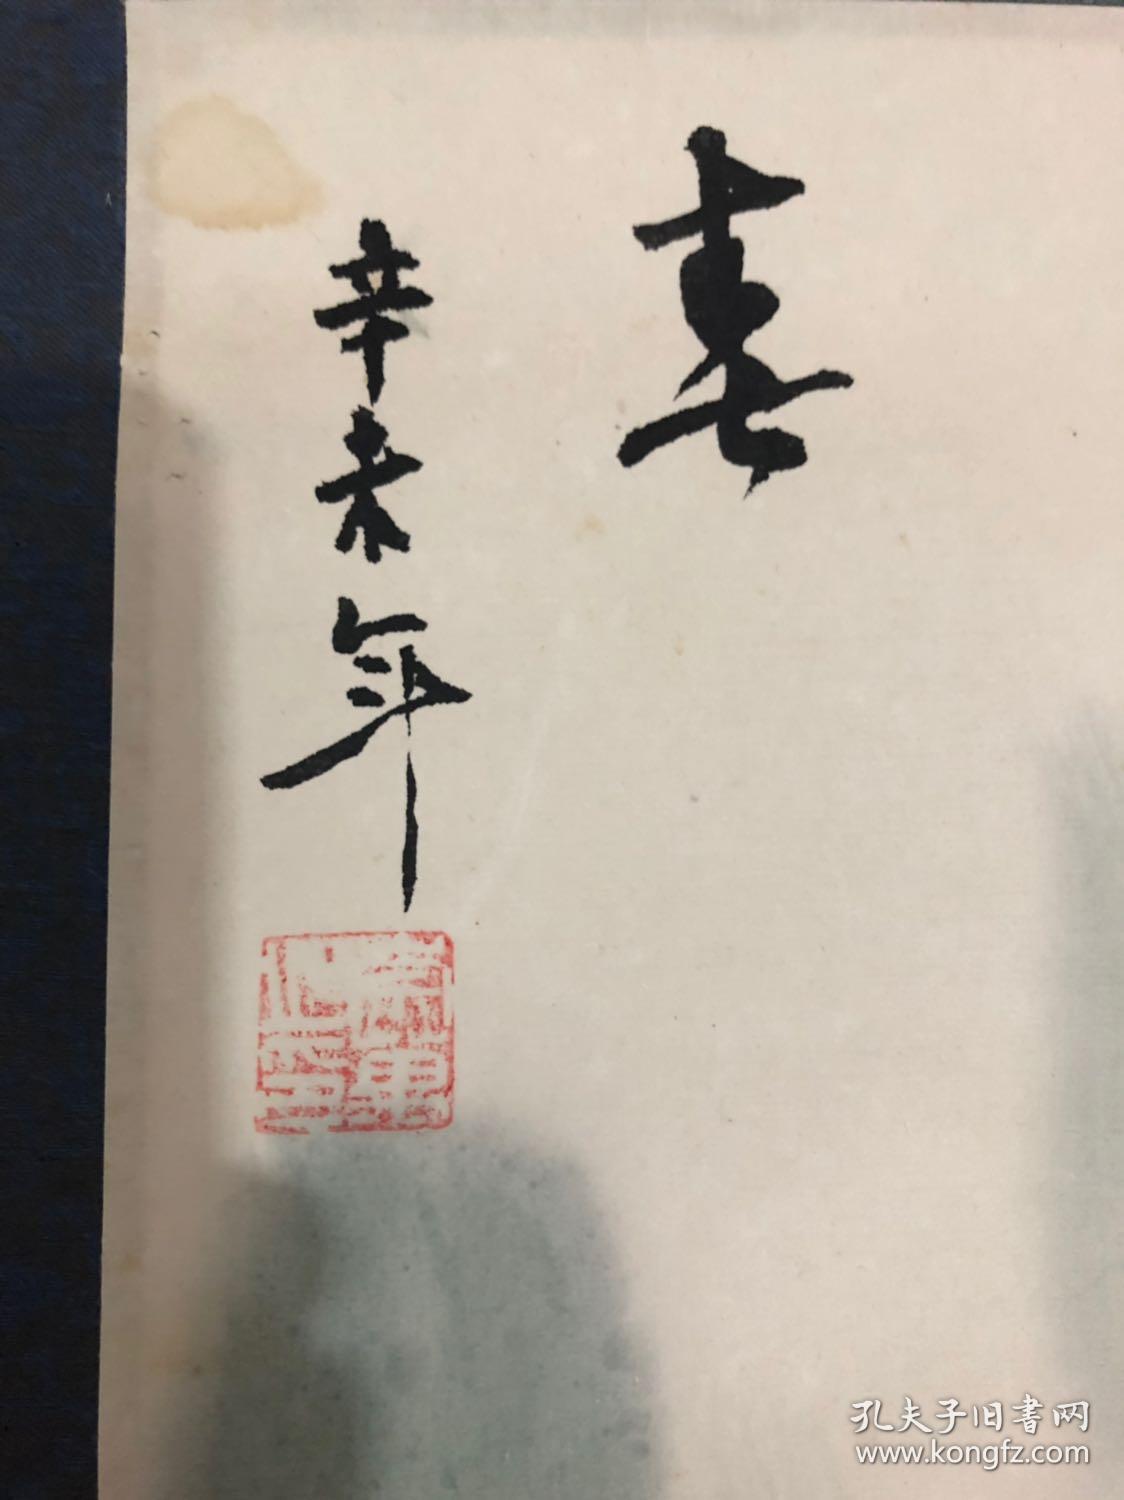 春
辛未年
孔夫子旧書网
www.kongfz.com